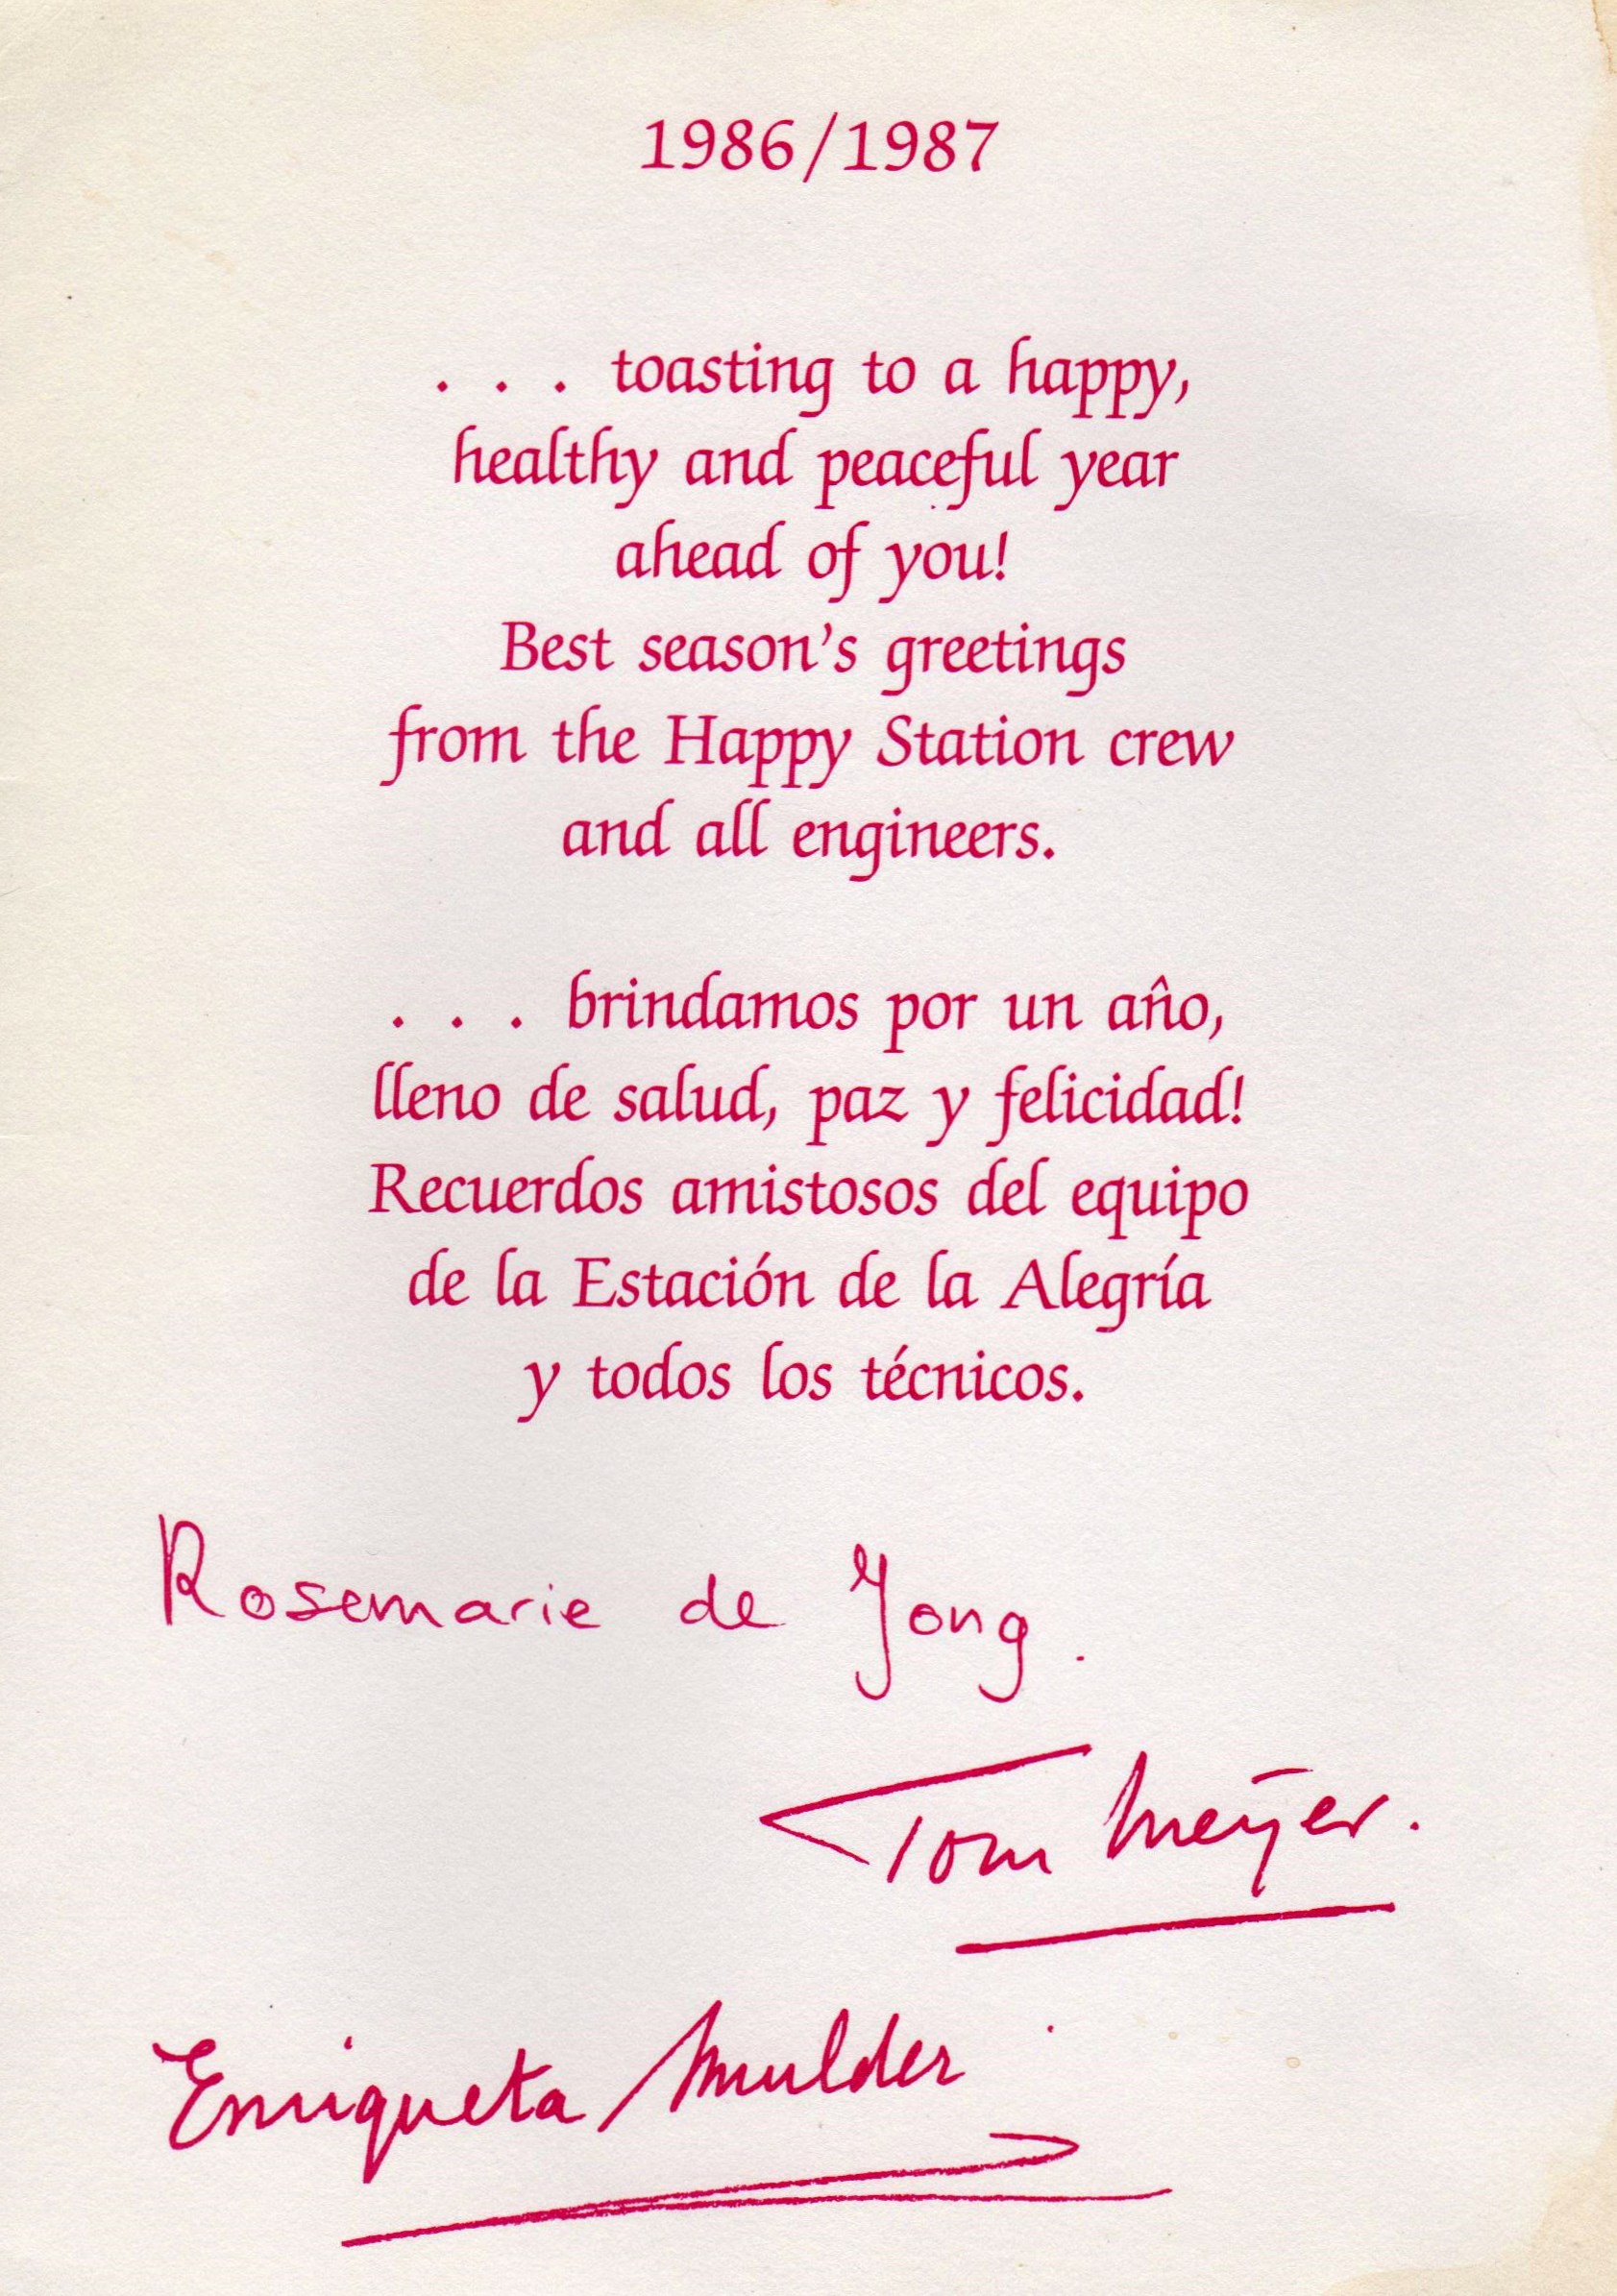 1986/1987
. . . toasting to a happy,
healthy and peaceful year
ahead of you!
Best season's greetings
from the Happy Station crew
and all engineers.
. . . brindamos por un año,
lleno de salud, paz y felicidad!
Recuerdos amistosos del equipo
de la Estación de la Alegría
y todos los técnicos.
Rosemarie de Jong.
Tom Meijer.
Enriqueta Mulder